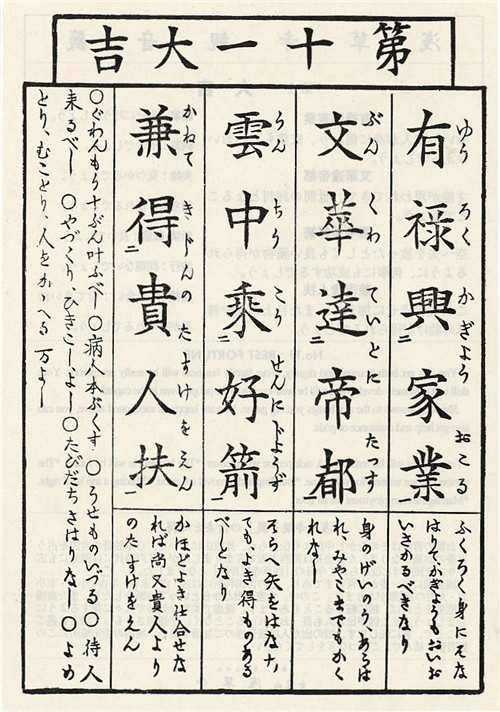 第十一大吉
有禄興二家業一
ゆうろくかぎようおこ
ふくろく身にそな
はりてかぎようもおいお
いさかるべきなり
文華達二帝都一
ぶんくわいとにたつす
身のげいのうあらは
れ、みやこまでもかく
れなし
雲中乗二好箭一
うんちうこうせんにじようず
そらへ矢をはなす, 
てもよき得ものある
べしとなり
兼得二貴人扶一
かねてきじんのたすけをえん
かほどよき仕合せな
れば尚又貴人より
のたすけをえん
〇ぐわんもう十ぶん叶ふべし〇病人本ぶくす〇うせものいづる〇待人
来るべし〇やづくり、ひきこしよし〇たびだちさはりなし〇よめ
とり、むことり、人をかゝへる万よし